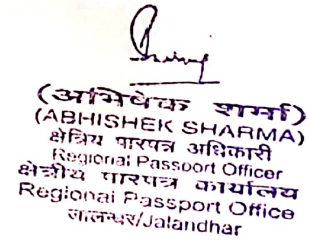 (अभिषेक शर्मा)
(ABHISHEK SHARMA)
क्षेत्रिय पारपत्र अधिकारी
Regional Passport Officer
क्षेत्रीय पारपत्र कार्यालय
Regional Passport Office
जालन्धर/Jalandhar